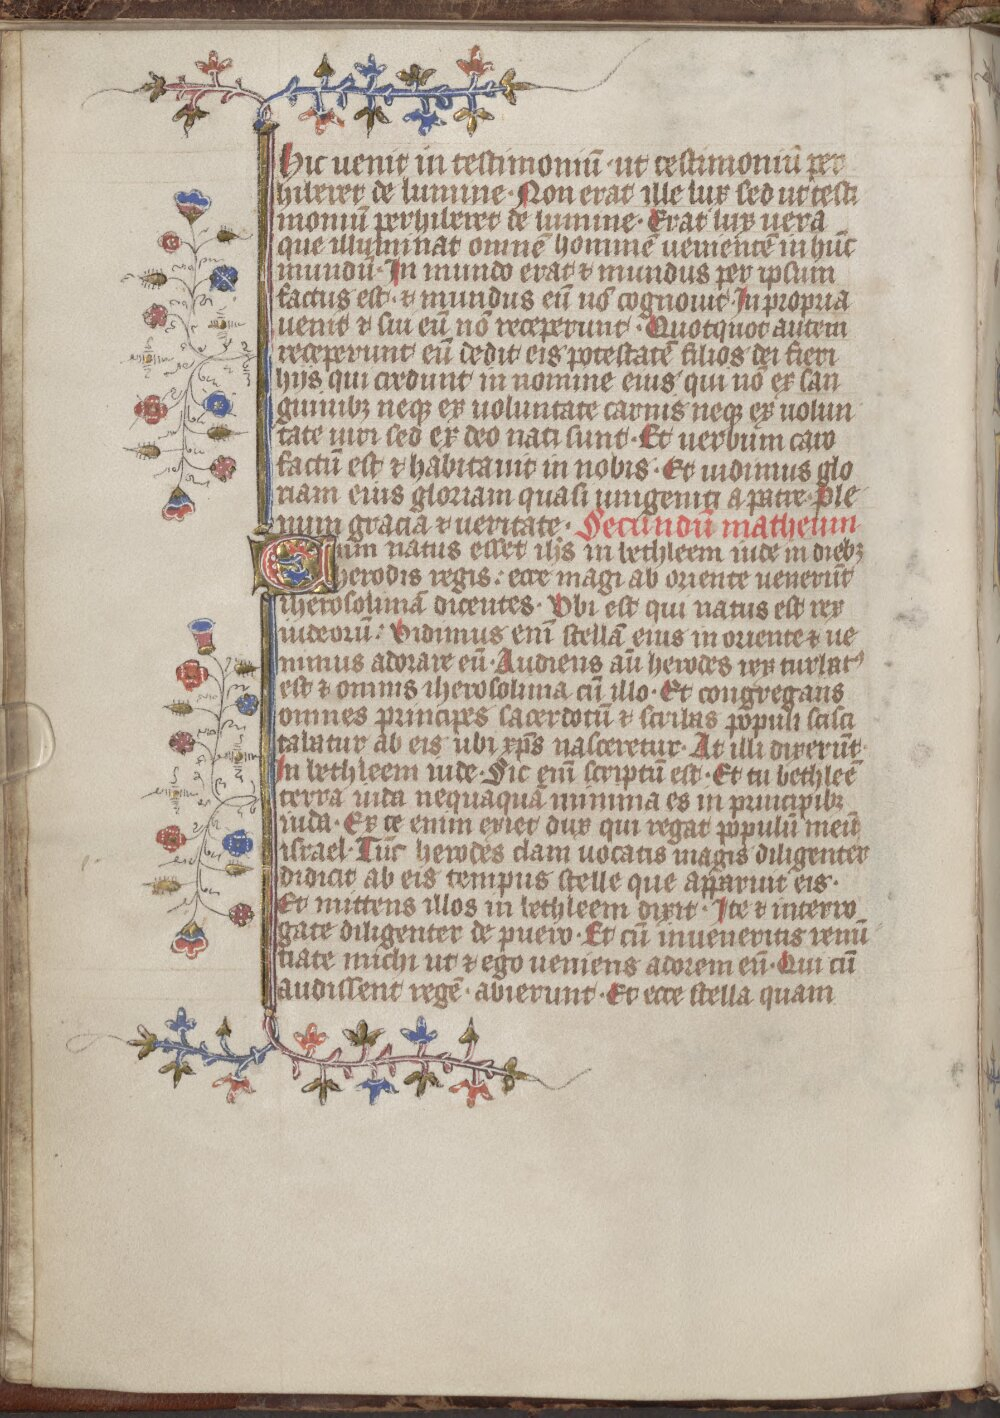 hic venit in testimoniū · ut testimoniū per
hiberet de lumine · Non erat ille lux sed ut testi
moniū perhiberet de lumine · Erat lux vera
que illuminat omnē hominē venientē in hūc
mundū · In mundo erat ⁊ mundus per ipsum
factus est · ⁊ mundus eū nō cognovit · In propria
venit ⁊ sui eū nō receperunt · Quotquot autem
receperunt eū dedit eis potestatē filios dei fieri
hijs qui credunt in nomine eius qui nō ex san
guinibꝫ neqꝫ ex voluntate carnis neqꝫ ex volun
tate viri sed ex deo nati sunt · Et verbum caro
factū est ⁊ habitavit in nobis · Et vidimus glo
riam eius gloriam quasi unigeniti a patre · Ple
num gracia ⁊ veritate · Secundū matheum
Cum natus esset ihs in bethleem iude in diebꝫ
herodis regis : ecce magi ab oriente venerūt
iherosolimā dicentes · Ubi est qui natus est rex
iudeorū : Vidimus enī stellā eius in oriente ⁊ ve
nimus adorare eū · Audiens aū herodes rex turbatꝰ
est ⁊ omnis iherosolima cū illo · Et congregans
omnes principes sacerdotū ⁊ scribas populi scisci
tabatur ab eis ubi xp̄s nasceretur · At illi dixerūt ·
In bethleem iude · Sic enī scriptū est · Et tu bethleē
terra iuda nequaquā minima es in principibꝫ
iuda · Ex te enim exiet dux qui regat populū meū
israel · Tūc herodes clam vocatis magis diligenter
didicit ab eis tempus stelle que apparuit eis ·
Et mittens illos in bethleem dixit · Ite ⁊ interro
gate diligenter de puero · Et cū inveneritis renū
tiate michi ut ⁊ ego veniens adorem eū · Qui cū
audissent regē · abierunt · Et ecce stella quam